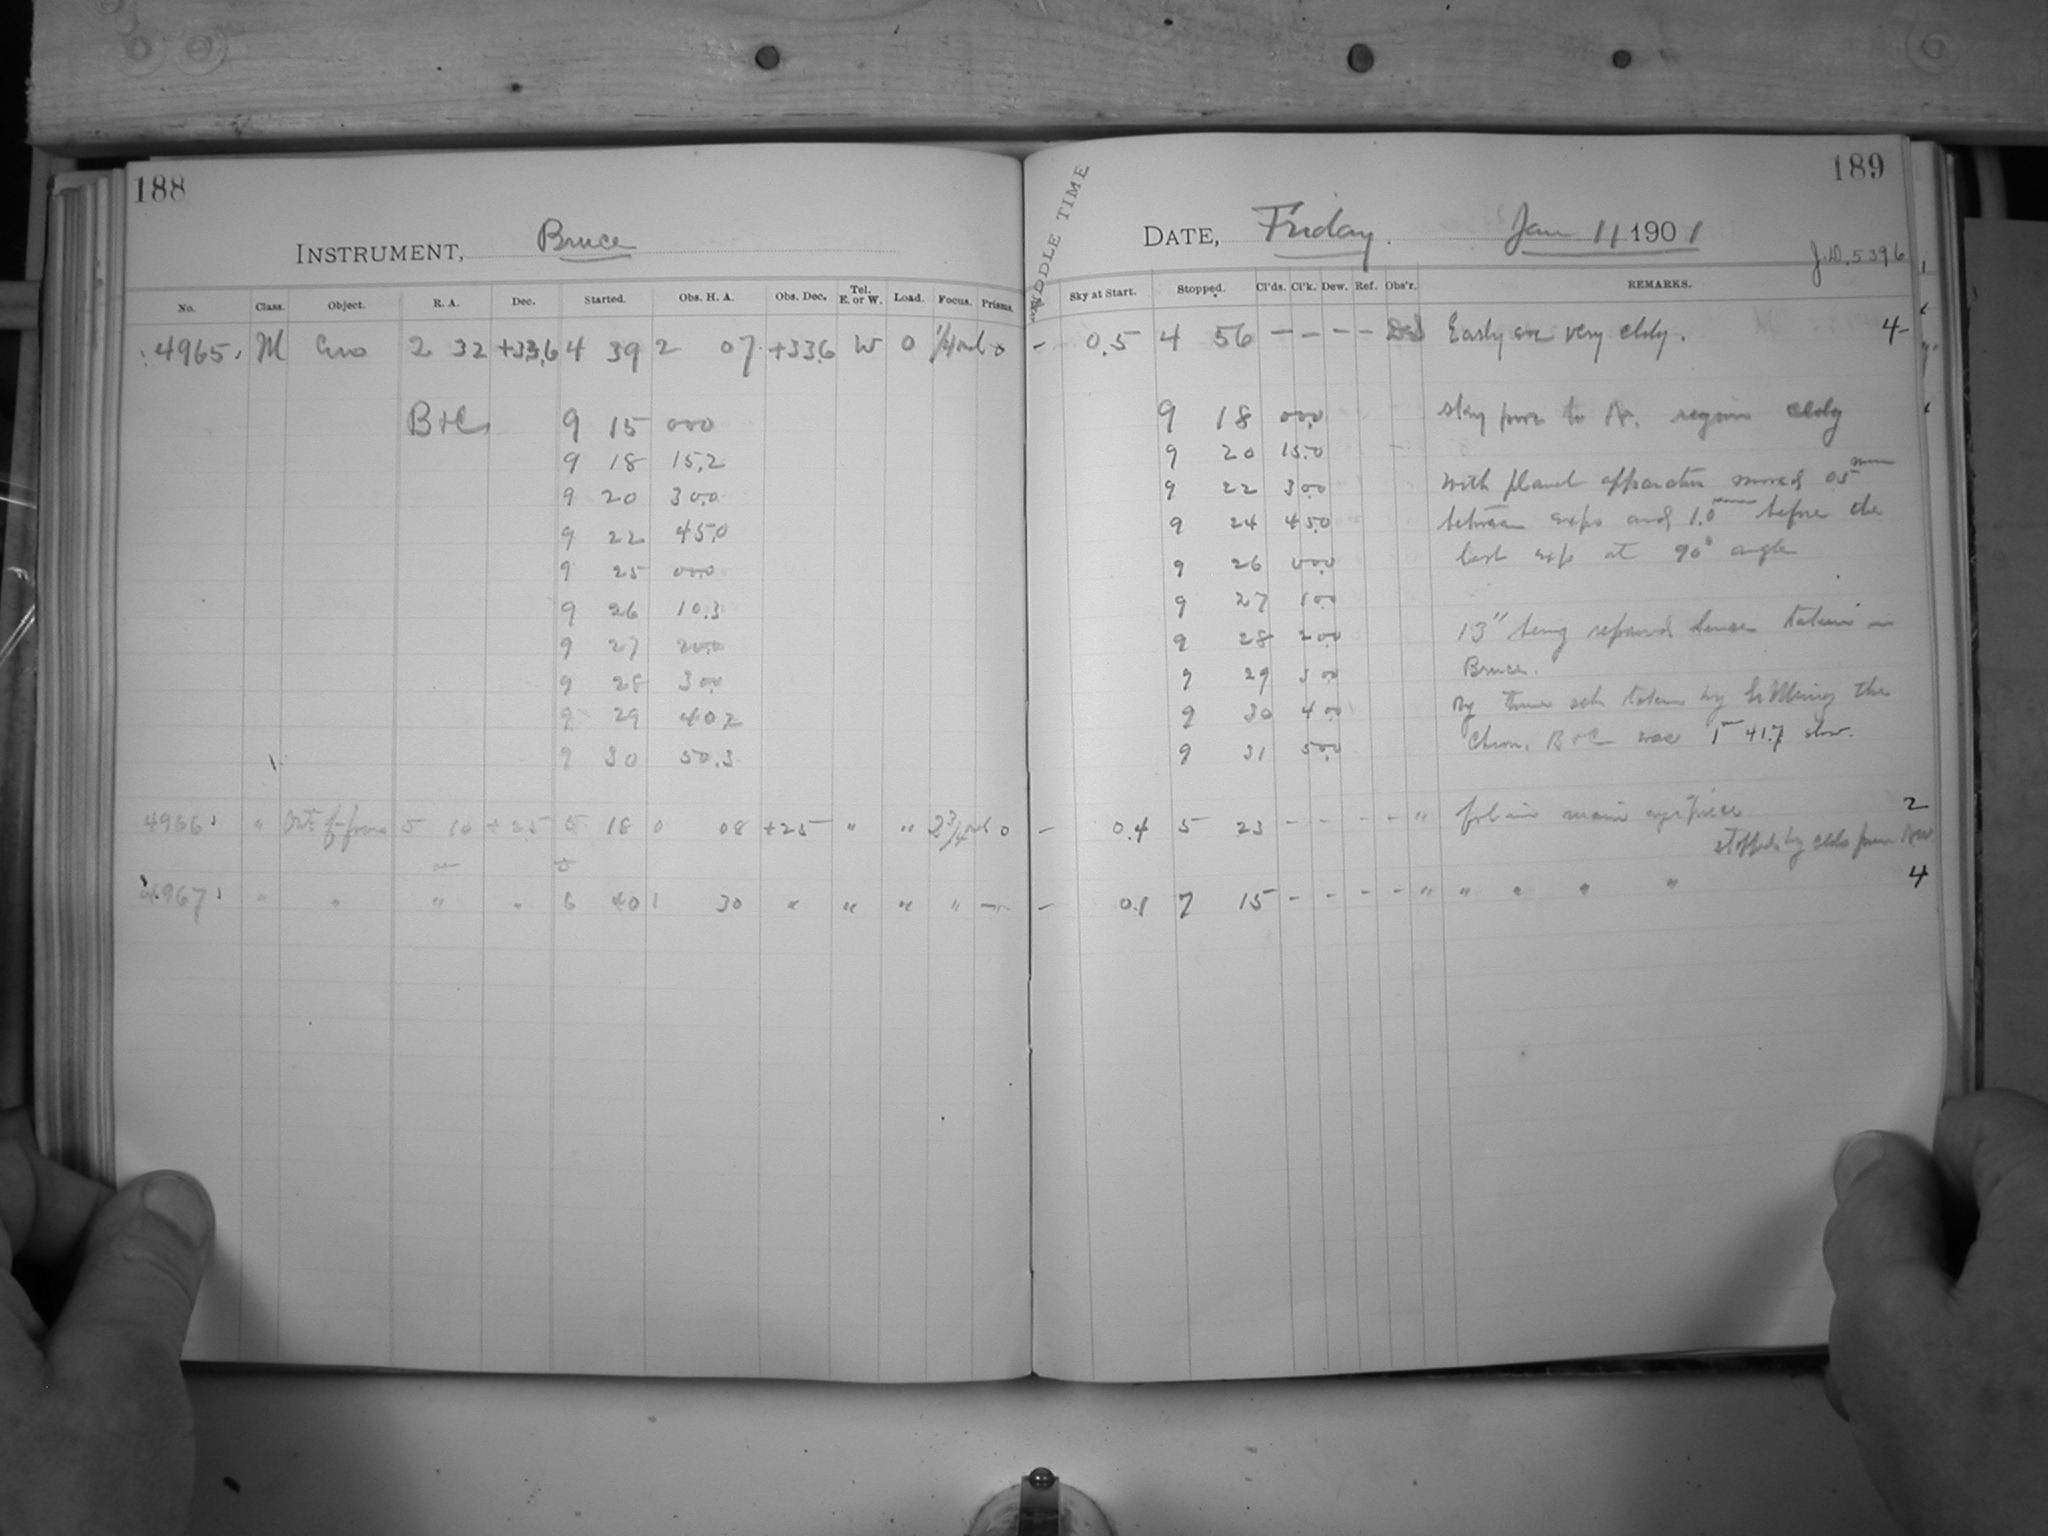 188
INSTRUMENT, Bruce
No. Class. Object. R. A. Dec. Started. Obs. H. A. Obs. Dec. Tel. E. or W. Load. Focus. Prisms.
4965 M 2 32 +33.6 4 39 2 07 +33.6 W 0
B+C 9 15 00.0
9 18 15.2
9 20 30.0
9 22 45.0
9 25 00.0
9 26 10.3
9 27 20.0
9 28 30.0
9 29 40.2
9 30 50.3
4966 " 5 10 +25 5 18 0 08 +25 " " 2 3/4 0
4967 " " " " 6 40 1 30 " " " " —
189
MIDDLE TIME
DATE, Friday. Jan 11 1901
J.D. 5396
Sky at Start. Stopped. Cl'ds. Cl'k. Dew. Ref. Obs'r. REMARKS.
- 0.5 4 56 — — — — Early eve very cldy. 4
9 18 00.0 sky poor to N. region cldy
9 20 15.0
9 22 30.0 with planet apparatus moved 0.5 mm
9 24 45.0 between exps and 1.0 before the
9 26 00.0 last exp at 90° angle
9 27 10.0
9 28 20.0 13" being repaired hence taken in
9 29 30.0 Bruce.
9 30 40.0 taken by the
9 31 50.0 Chron. B+C was 1 41.7 slow.
- 0.4 5 23 - - - - " main eyepiece 2
stopped by clds from NW.
- 0.1 7 15 - - - - " " " " " 4